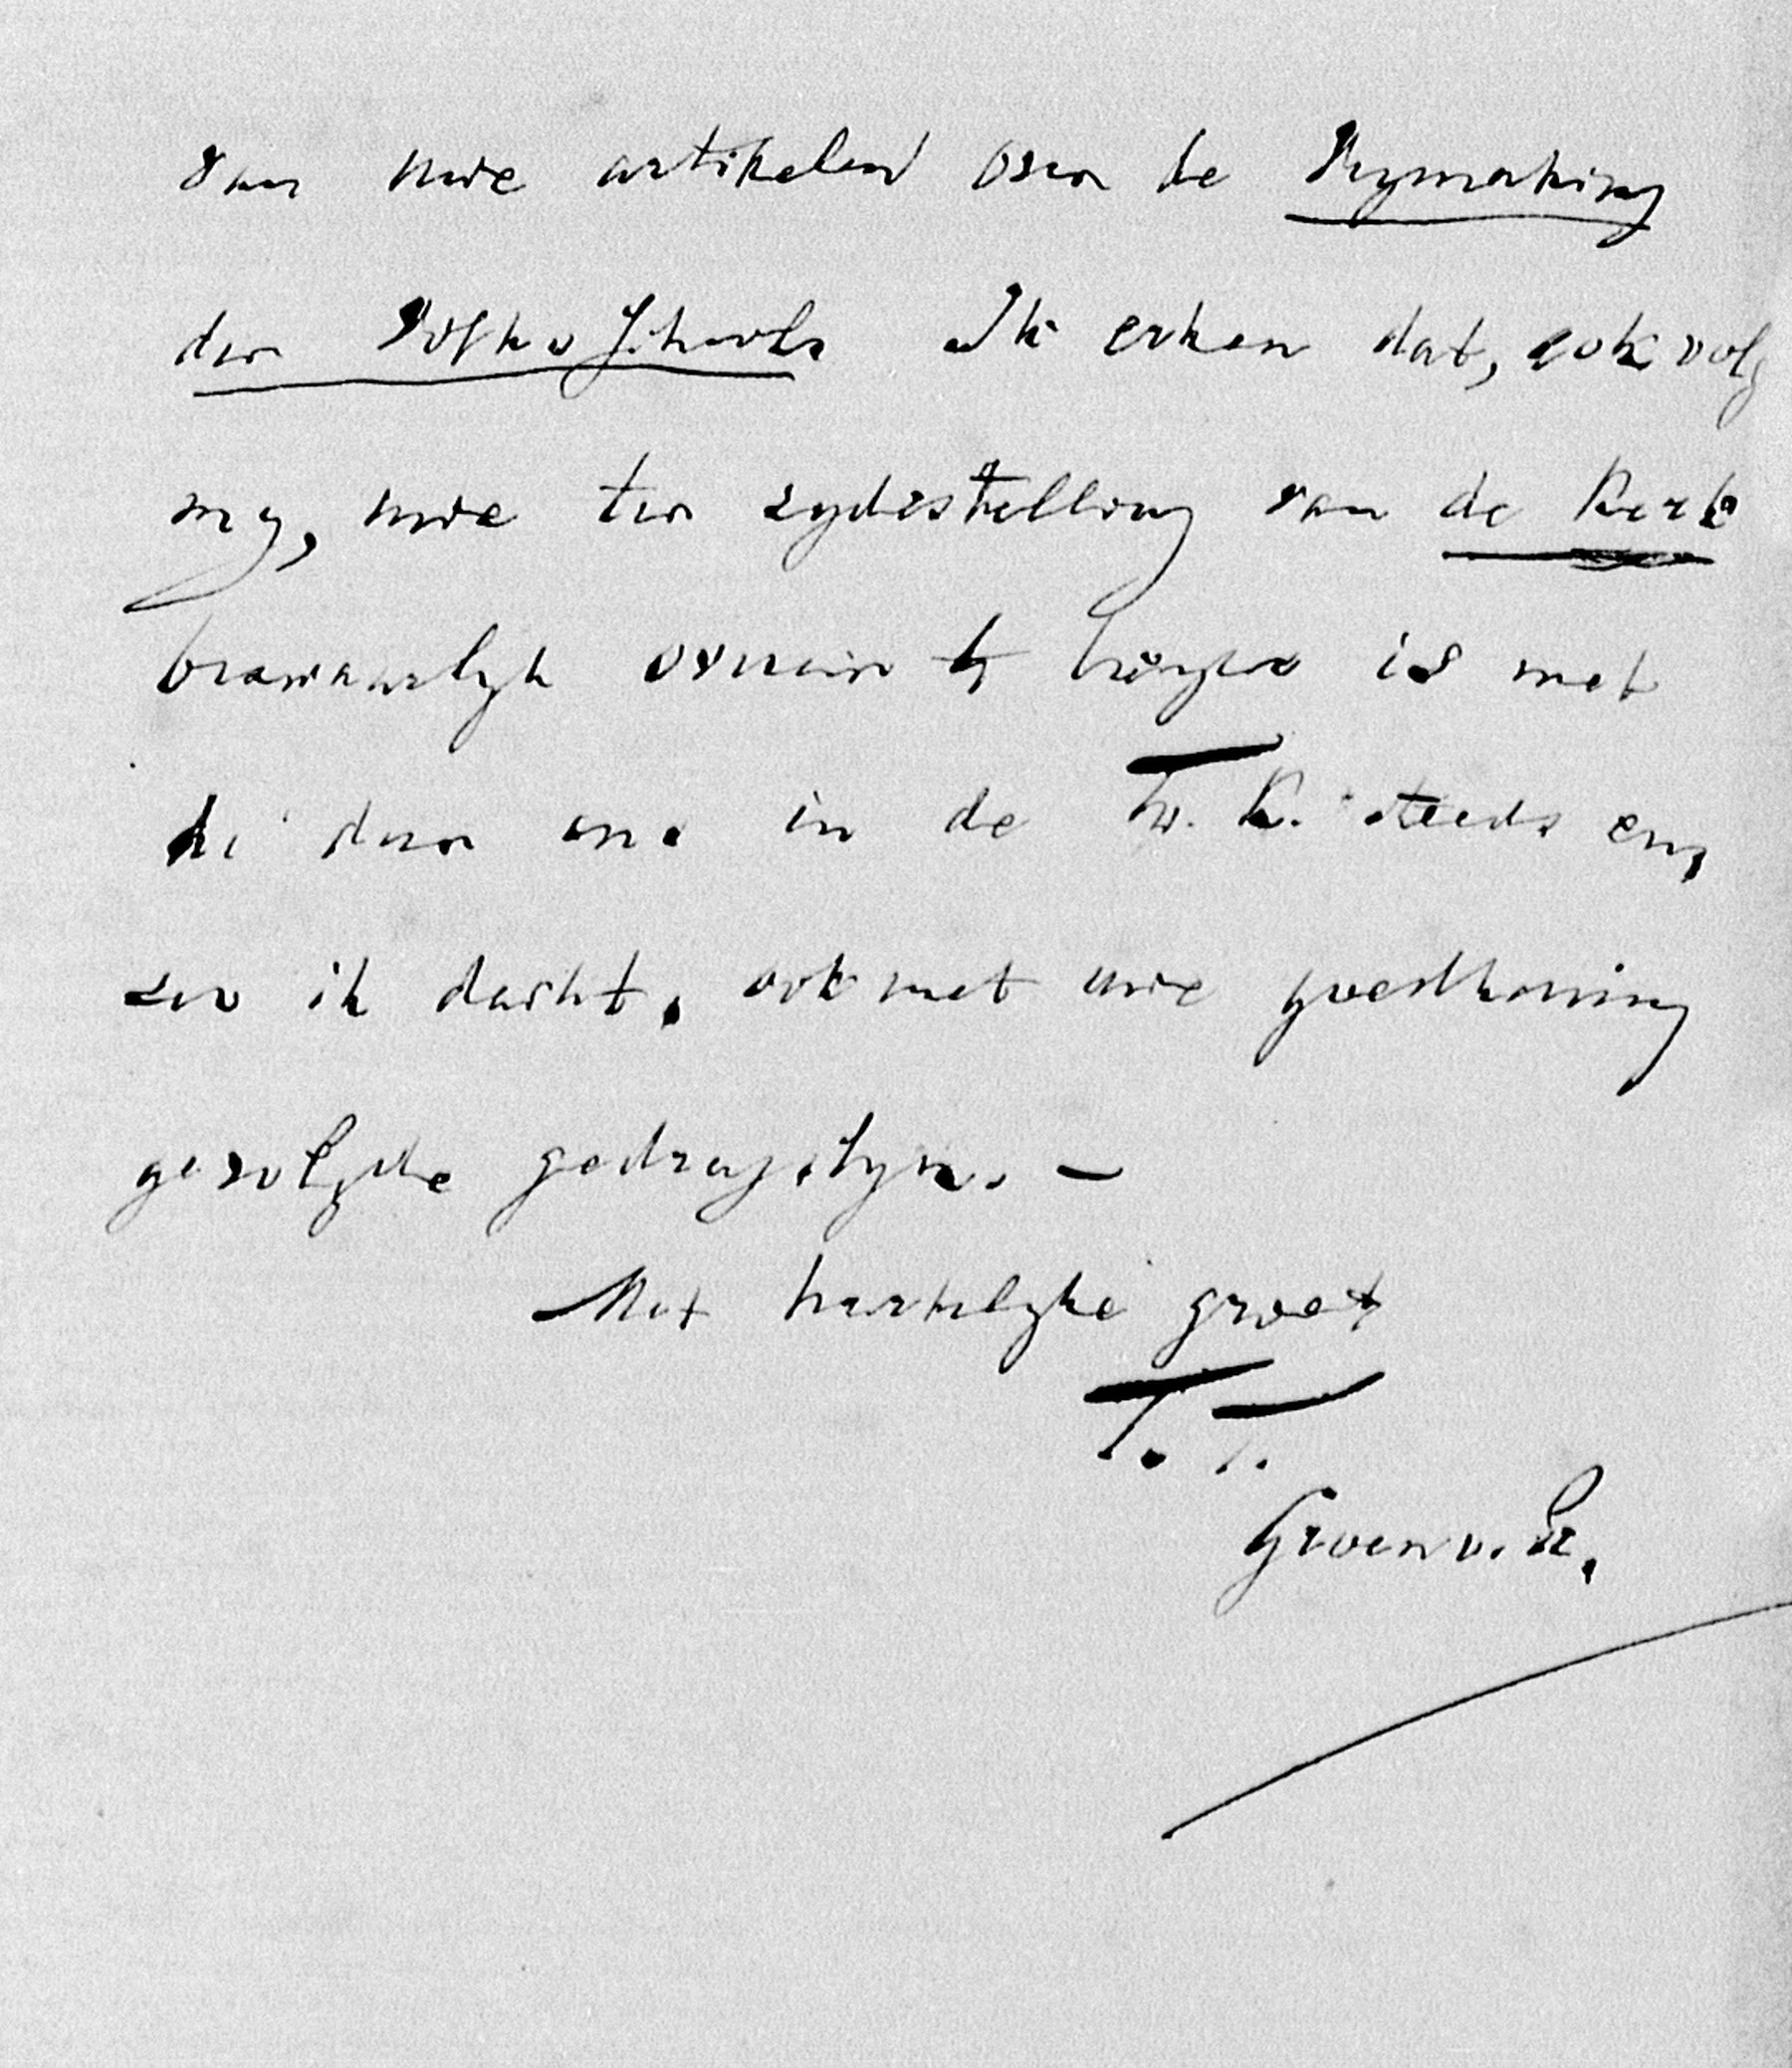 van uwe artikelen over de Vrymaking
der Volksschool. Ik erken dat, ook volg
my, uwe ter zydestelling van de Kerk
bezwaarlyk overeen te brengen is met
de door ons in de Tw. K. steeds en,
zoo ik dacht, ook met uwe goedkeuring
gevolgde gedragslyn. —
Met hartelyke groet
T. T.
Groen v. Pr.